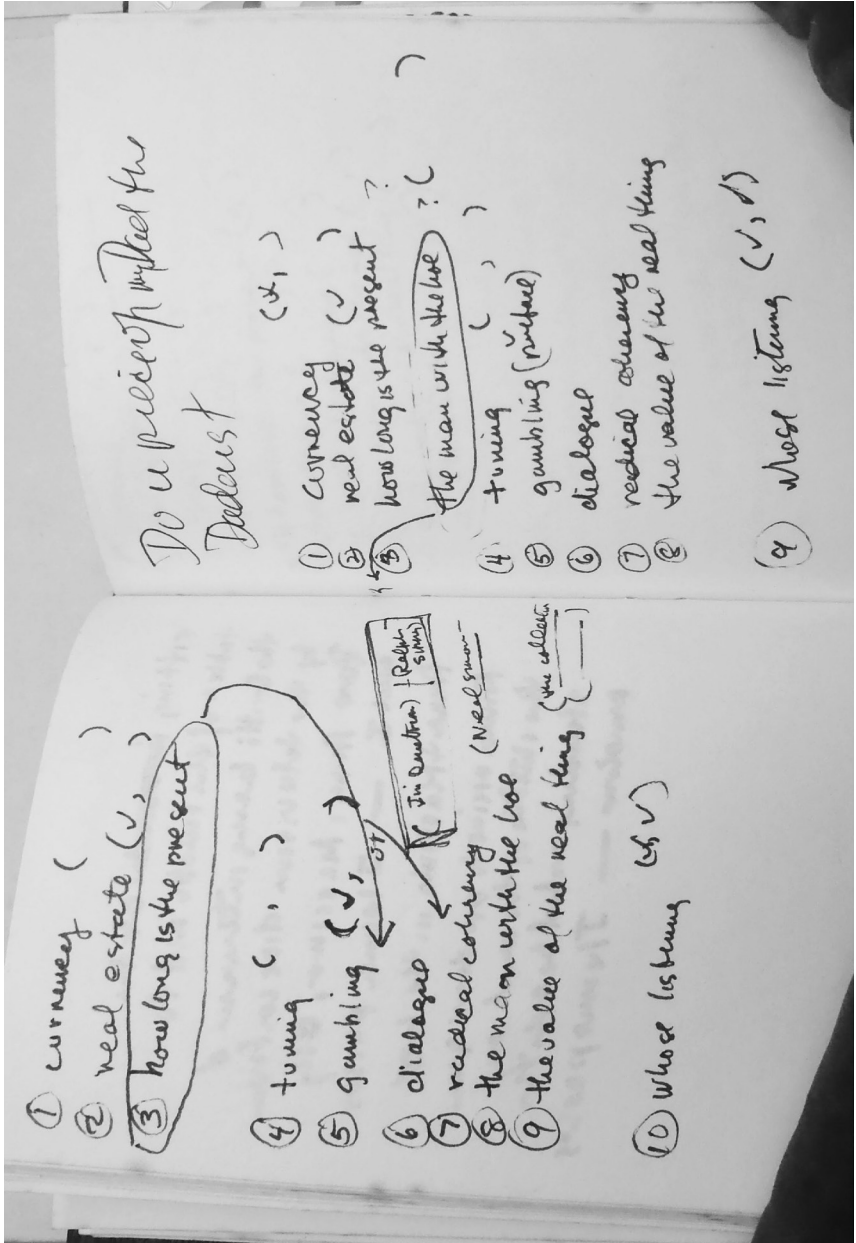 ① currency (          )
② real estate (✓,     )
③ how long is the present
④ tuning (   ,   )
⑤ gambling (✓,   )
or
⑥ dialogue
(Jim        ) (Ralph
⑦ radical coherency
⑧ the man with the hoe (Neal
⑨ the value of the real thing (the collector
(          )
⑩ whose listening (   ✓)
Do u
the
① currency (   ,   )
② real estate (✓   )
③ how long is the present ?
the man with the hoe ? (          )
④ tuning (   ,   )
⑤ gambling (
⑥ dialogue
⑦ radical coherency
⑧ the value of the real thing
⑨ whose listening (✓,   )